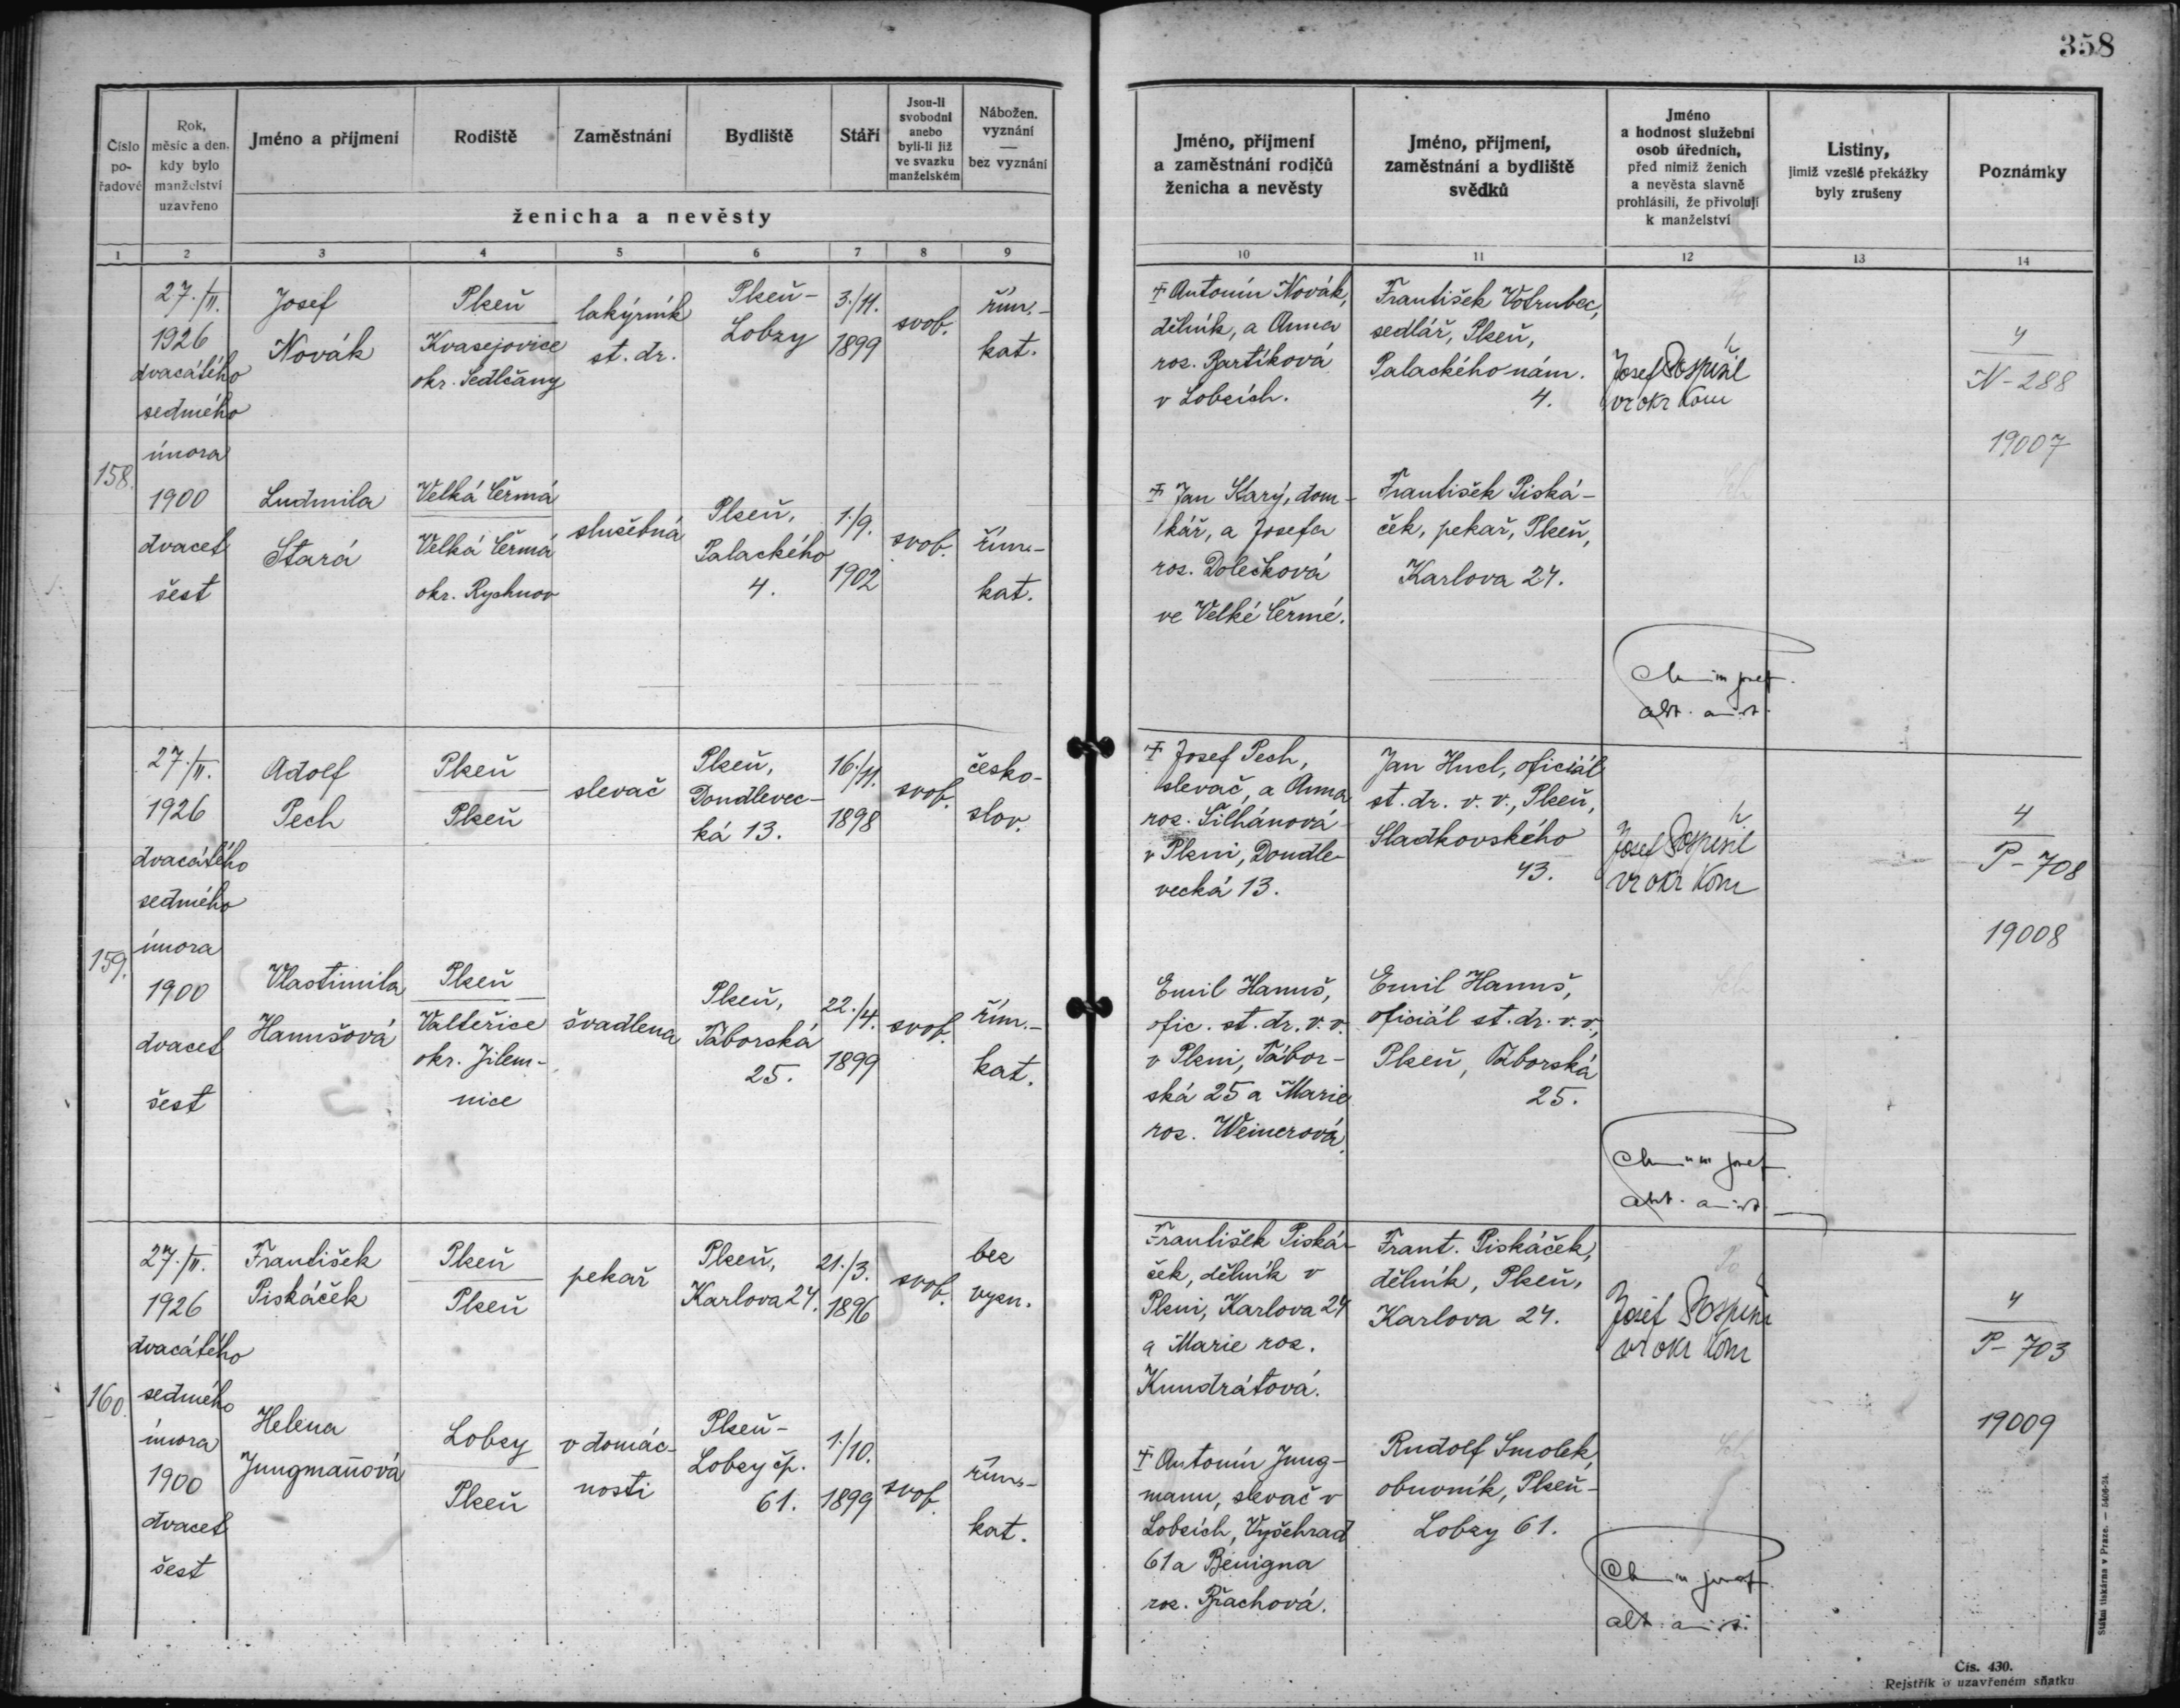 358
Číslo pořadové
Rok, měsíc a den, kdy bylo manželství uzavřeno
Jméno a příjmení
Rodiště
Zaměstnání
Bydliště
Stáří
Jsou-li svobodni anebo byli-li již ve svazku manželském
Nábožen. vyznání — bez vyznání
ženicha a nevěsty
Jméno, příjmení a zaměstnání rodičů ženicha a nevěsty
Jméno, příjmení, zaměstnání a bydliště svědků
Jméno a hodnost služební osob úředních, před nimiž ženich a nevěsta slavně prohlásili, že přivolují k manželství
Listiny, jimiž vzešlé překážky byly zrušeny
Poznámky
1 2 3 4 5 6 7 8 9 10 11 12 13 14
158.
27./II.
1926
dvacátého
sedmého
února
1900
dvacet
šest
Josef
Novák
Plzeň
Kvasejovice
okr. Sedlčany
lakýrník
st. dr.
Plzeň-
Lobzy
3./11.
1899
svob.
řím.-
kat.
Ludmila
Stará
Velká Čermá
Velká Čermá
okr. Rychnov
služebná
Plzeň,
Palackého
4.
1./9.
1902
svob.
řím.-
kat.
Antonín Novák,
dělník, a Anna
roz. Bartíková
v Lobzích.
František Votrubec,
sedlář, Plzeň,
Palackého nám.
4.
Josef Pospíšil
vr okr kom
4
N-288
19007
Jan Starý, dom-
kář, a Josefa
roz. Dolečková
ve Velké Čermé.
František Piská-
ček, pekař, Plzeň,
Karlova 24.
159.
27./II.
1926
dvacátého
sedmého
února
1900
dvacet
šest
Adolf
Pech
Plzeň
Plzeň
slevač
Plzeň,
Doudlevec-
ká 13.
16./11.
1898
svob.
česko-
slov.
Vlastimila
Hanušová
Plzeň
Valteřice
okr. Jilem-
nice
švadlena
Plzeň,
Táborská
25.
22./4.
1899
svob.
řím.-
kat.
Josef Pech,
slevač, a Anna
roz. Šilhánová
v Plzni, Doudle-
vecká 13.
Jan Hucl, oficiál
st. dr. v. v., Plzeň,
Sladkovského
43.
Josef Pospíšil
vr okr kom
4
P-708
19008
Emil Hanuš,
ofic. st. dr. v. v.
v Plzni, Tábor-
ská 25 a Marie
roz. Weinerová.
Emil Hanuš,
oficiál st. dr. v. v.,
Plzeň, Táborská
25.
160.
27./II.
1926
dvacátého
sedmého
února
1900
dvacet
šest
František
Piskáček
Plzeň
Plzeň
pekař
Plzeň,
Karlova 24.
21./3.
1896
svob.
bez
vyzn.
Helena
Jungmanová
Lobzy
Plzeň
v domác-
nosti
Plzeň-
Lobzy čp.
61.
1./10.
1899
svob.
řím.-
kat.
František Piská-
ček, dělník v
Plzni, Karlova 24
a Marie roz.
Kundrátová.
Frant. Piskáček,
dělník, Plzeň,
Karlova 24.
Josef Pospíšil
vr okr kom
4
P-703
19009
Antonín Jung-
mann, slevač v
Lobzích, Vyšehrad
61 a Benigna
roz. Přachová.
Rudolf Smolek,
obuvník, Plzeň-
Lobzy 61.
Státní tiskárna v Praze. — 5406-24.
Čís. 430.
Rejstřík o uzavřeném sňatku